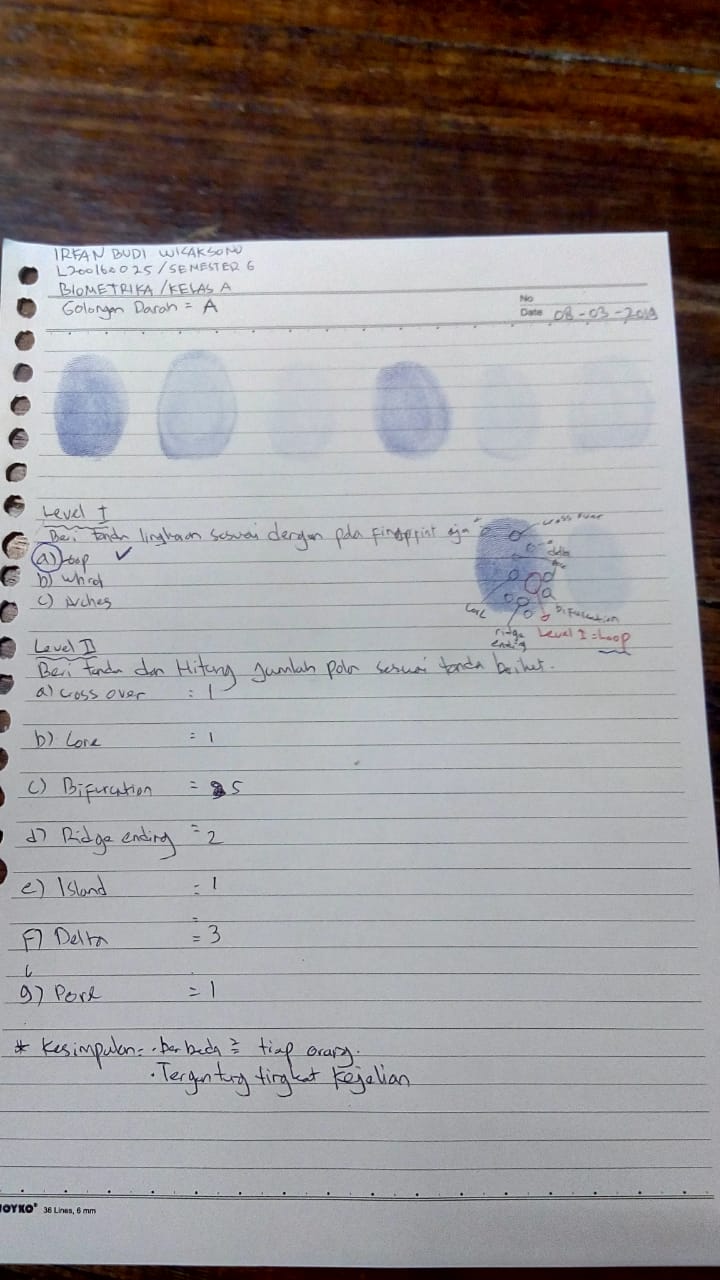 IRFAN BUDI WICAKSONO
L200160025/SEMESTER 6
BIOMETRIKA /KELAS A
Golongan Darah = A
No
Date 08-03-2019
Level I
Beri tanda lingkaran sesuai dengan pola Fingerprint aja
a) Loop ✓
b) Whrol
c) Arches
cross over
delta
Core
Bifurcation
ridge ending
Level I = Loop
Level II
Beri tanda dan Hitung Jumlah pola sesuai tanda berikut.
a) cross over : 1
b) Core = 1
c) Bifurcation = 5
d) Ridge ending = 2
e) Island = 1
F) Delta = 3
g) Pore = 1
* Kesimpulan = · berbeda ² tiap orang.
· Tergantung tingkat kejelian
JOYKO® 36 Lines, 6 mm